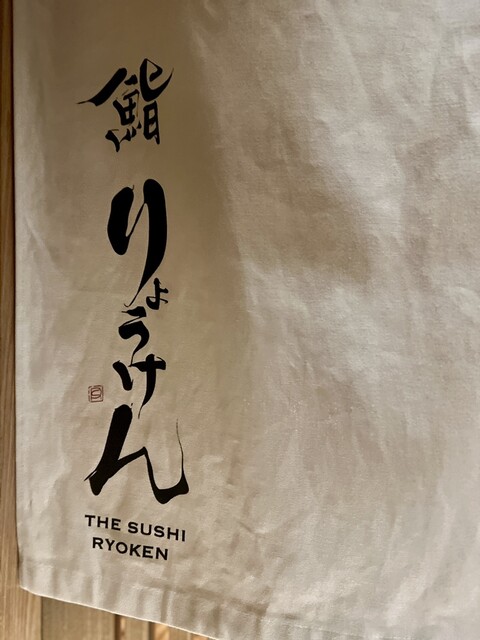 鮨 りょうけん
THE SUSHI
RYOKEN